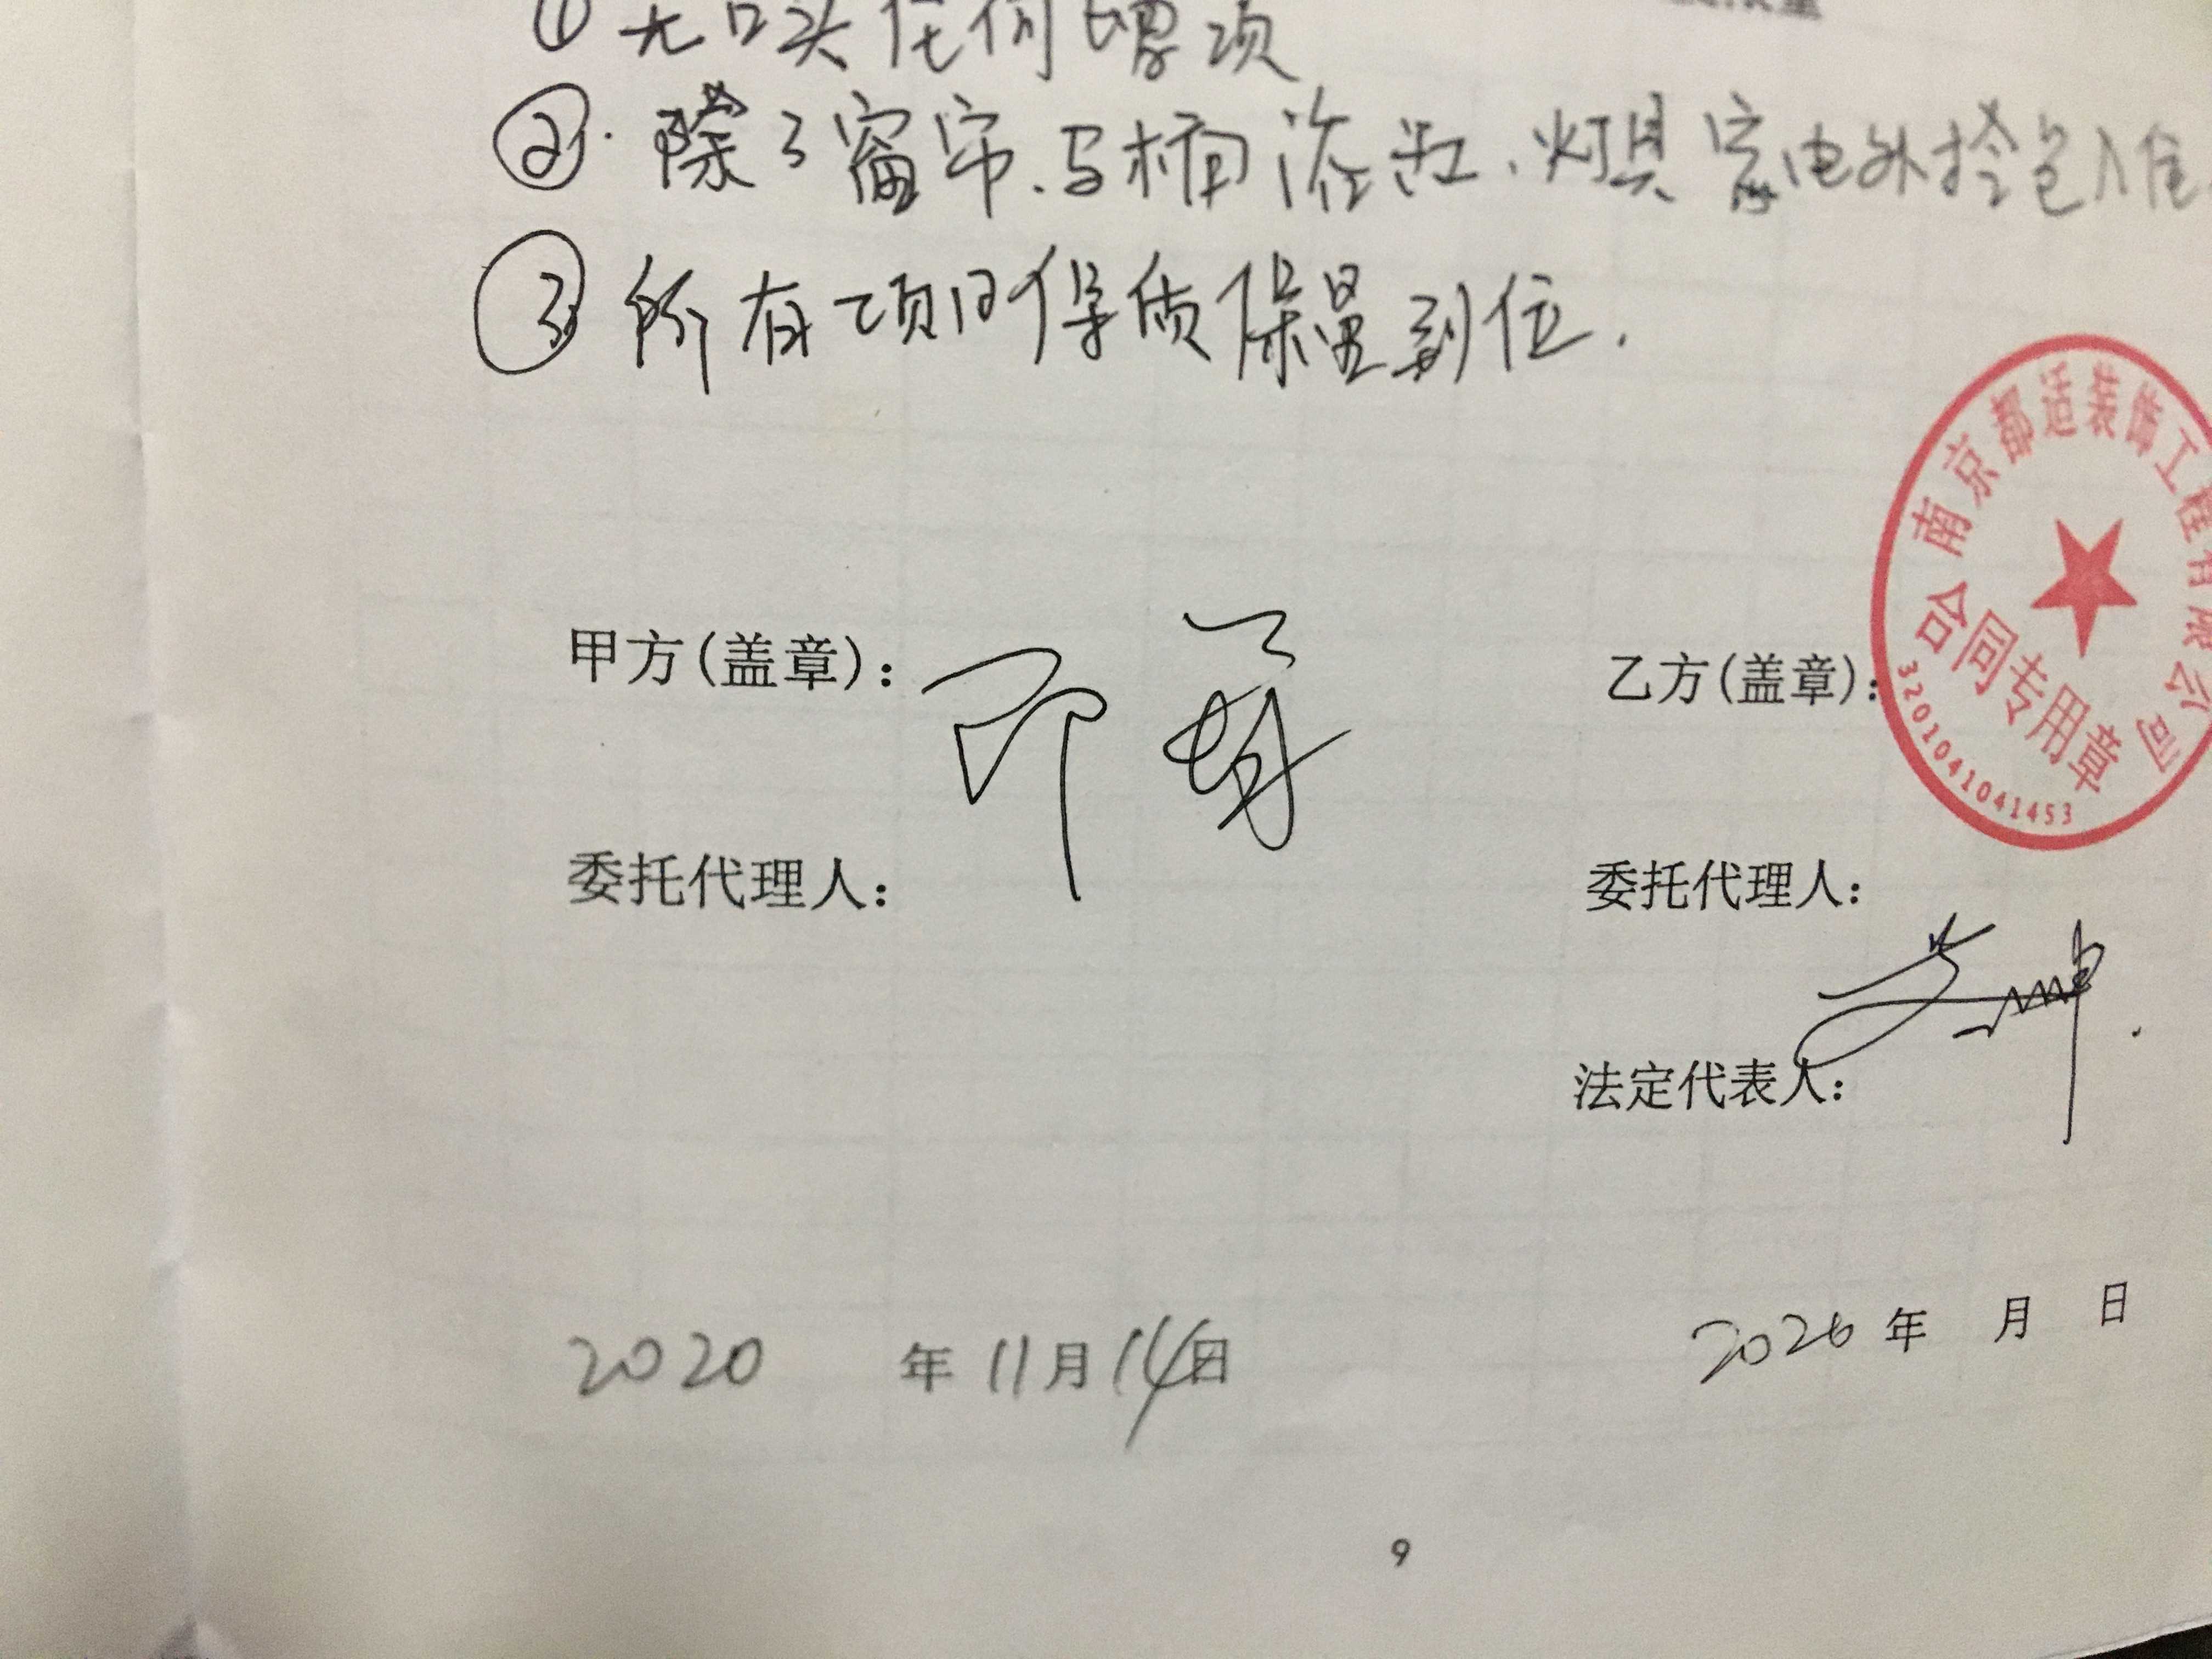 ① 无口头任何增项
②. 除了窗帘、马桶浴缸、灯具家电外拎包入住
③ 所有项目保质保量到位.
甲方(盖章):
乙方(盖章):
南京都适装饰工程有限公司
合同专用章
3201041041453
委托代理人:
委托代理人:
法定代表人:
2020 年 11月 14日
2020 年 月 日
9